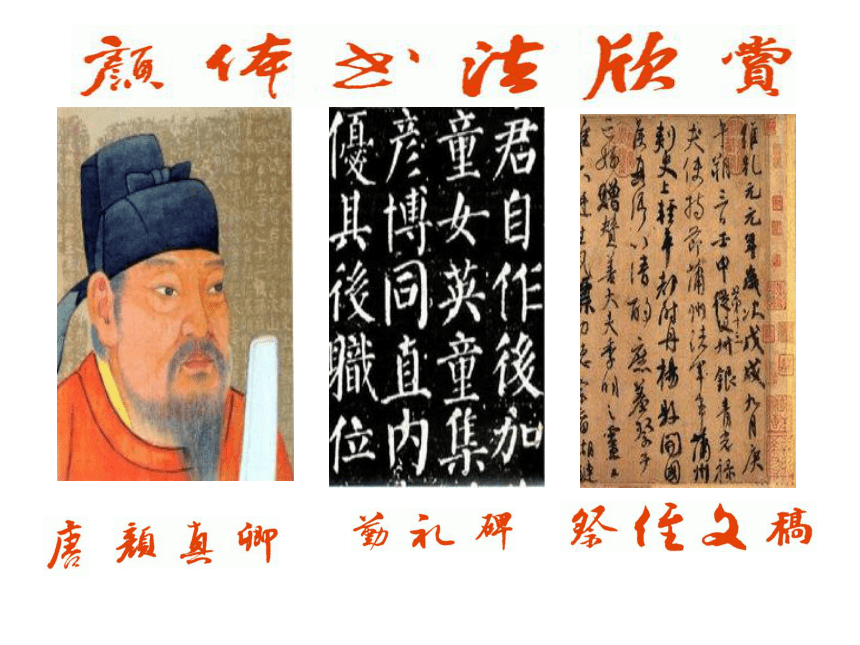 顔体书法欣賞
君自作後加
童女英童集
彦博同直内
優其後職位
維乾元元年歲次戊戌九月庚
午朔三日壬申第十三從父銀青光祿
夫使持節蒲州諸軍事蒲州
刺史上輕車都尉丹楊縣開國
侯真卿以清酌庶羞祭于
亡姪贈贊善大夫季明之靈曰
惟爾挺生夙標幼德宗廟瑚璉
唐顔真卿
勤礼碑
祭侄文稿